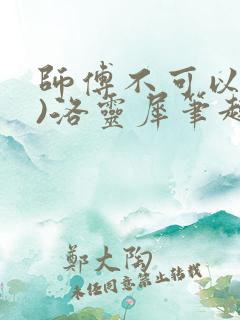 師傅不可以
)洛靈犀筆趣
鄭大陶
未经同意禁止转载